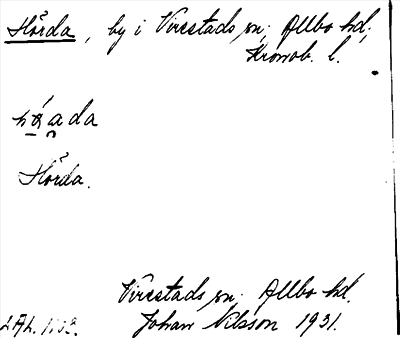 Hörda, by i Virestads sn; Allbo hd,
Kronob. l.
Hörda.
Virestads sn; Allbo hd.
Johan Nilsson 1931.